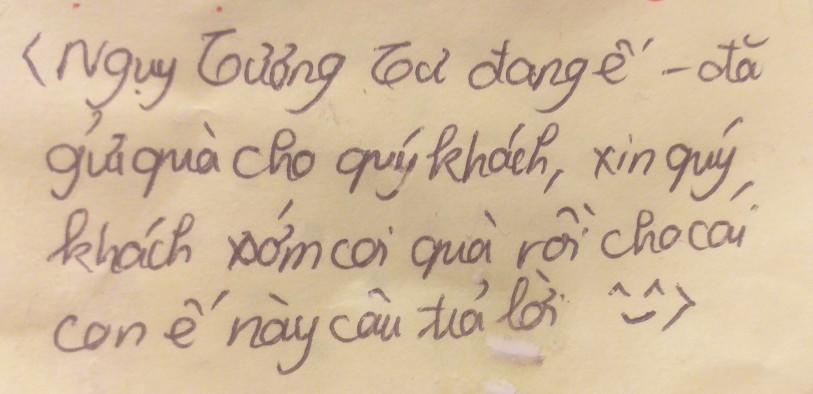 <Ngụy Tưởng Tơ đang ế - đã
gửi quà cho quý khách, xin quý
khách sớm coi quà rồi cho cái
con ế này câu trả lời ^‿^>